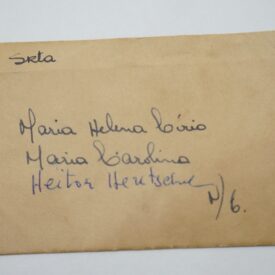 SRTA
Maria Helena Círio
Maria Carolina
Heitor
N/6.